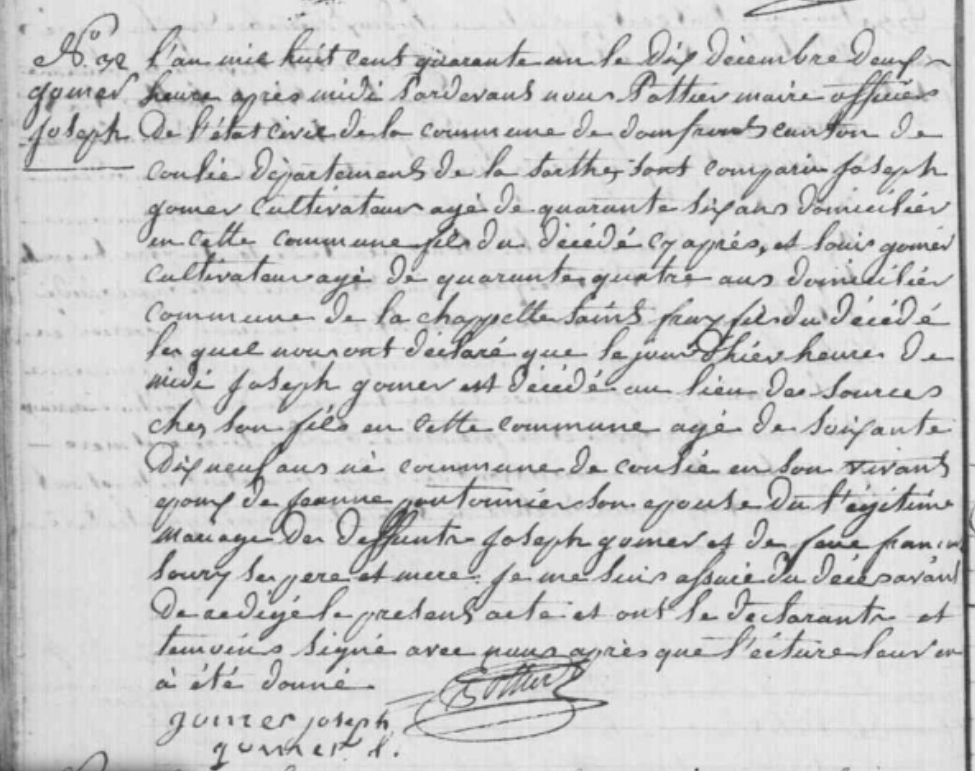 N.o 32
gomer
Joseph
L'an mil huit cent quarante un le dix décembre deux
heure après midi Pardevant nous Pottier maire officier
De l'état civil de la commune de domfront canton de
conlie département de la sarthe, sont comparu Joseph
gomer cultivateur agé de quarante six ans domicilier
en cette commune fils du décédé cy après, et louis gomer
cultivateur agé de quarante quatre ans domicilier
commune de la chappelle saint fray fils du décédé
les quel nous ont déclaré que le jour d'hier heure de
midi Joseph gomer est décédé au lieu des sources
chez son fils en cette commune agé de soixante
Dix neuf ans né commune de conlie en son vivant
epoux de Jeanne son epouse du légitime
mariage des deffunts Joseph gomer et de feue
Soury ses pere et mere. Je me suis assuré du décès avant
De redigé le present acte et ont le declarants et
temoins signé avec nous après que l'écture leur en
à été donné
gomer joseph Pottier
gomer l.